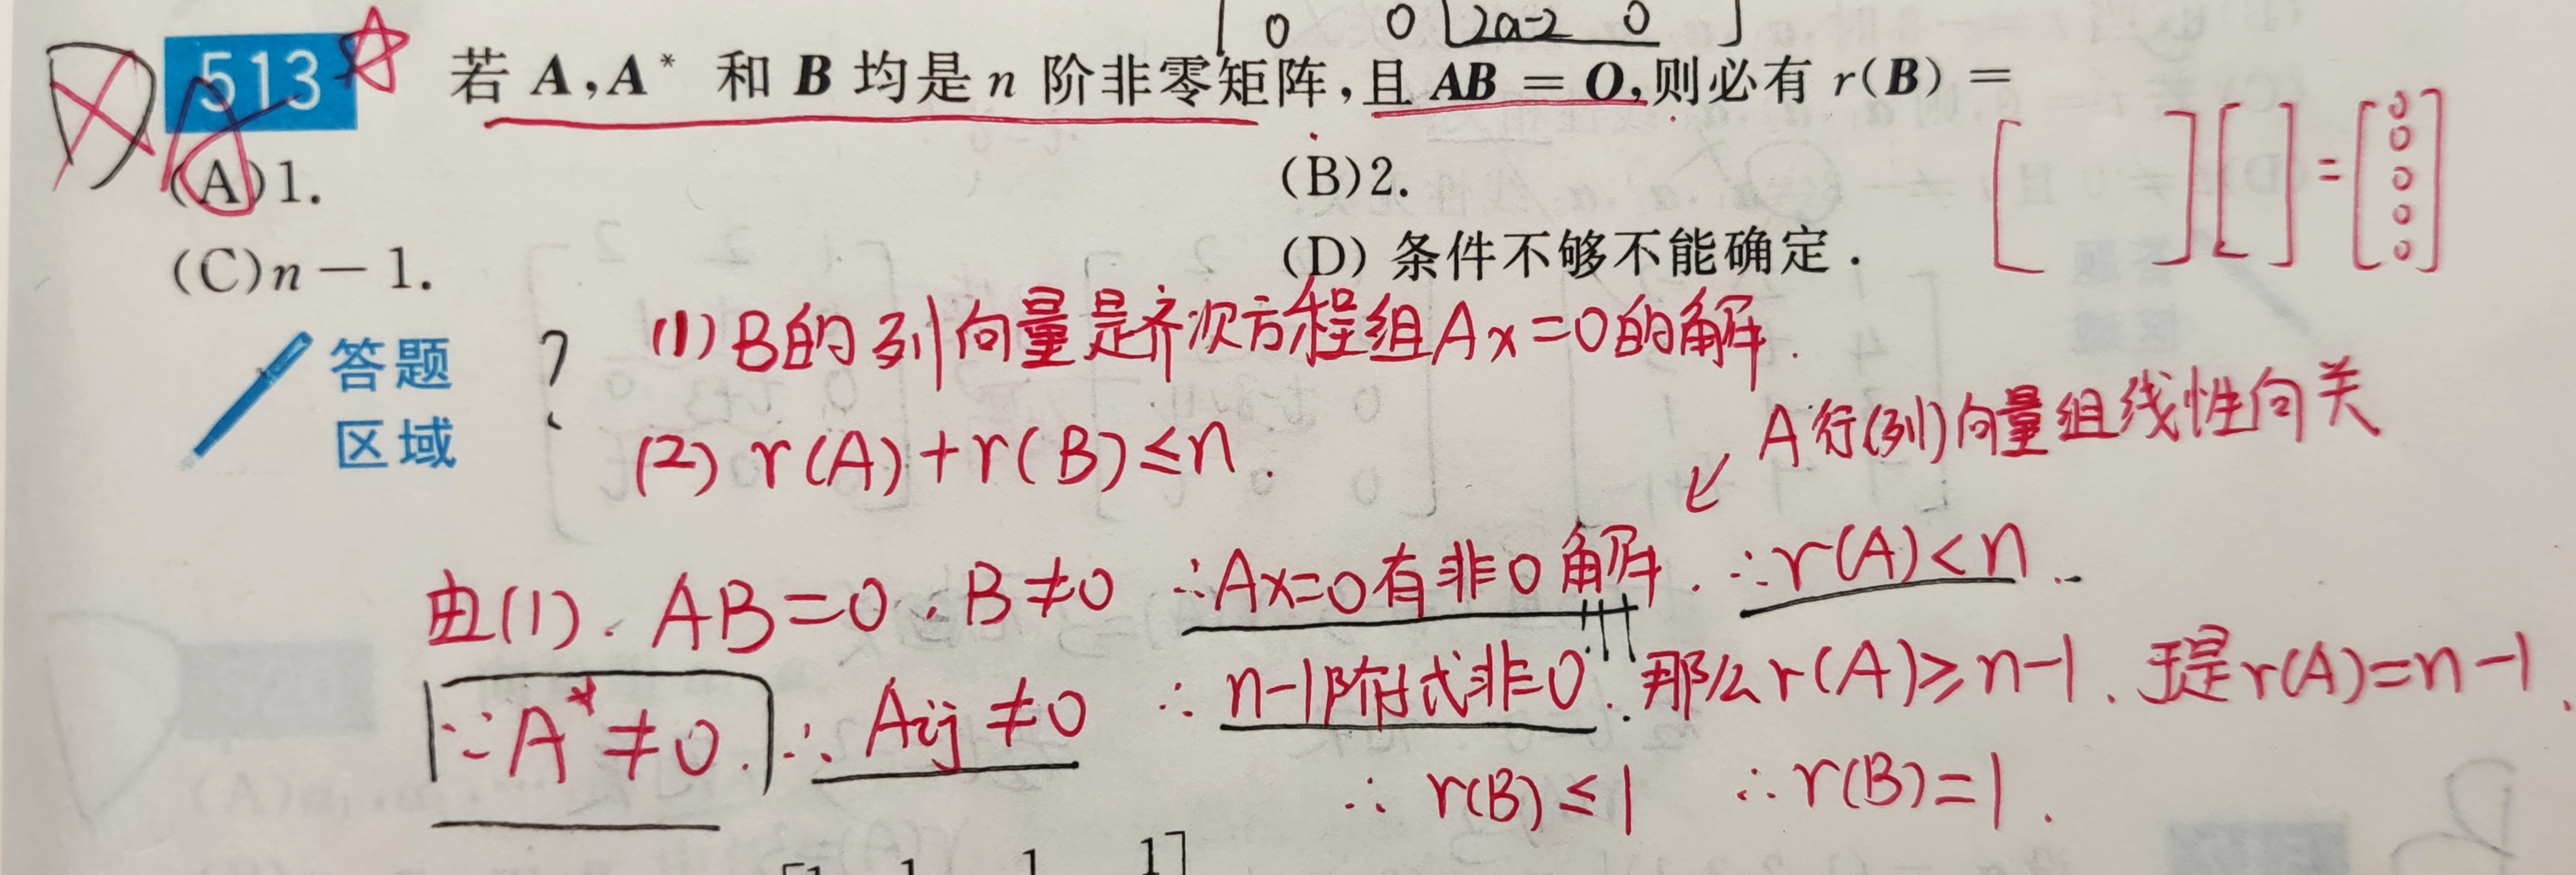 0 0 2a-2 0
513 若 A,A* 和 B 均是 n 阶非零矩阵,且 AB = O,则必有 r(B) =
(A)1.
(B)2.
(C)n-1.
(D) 条件不够不能确定.
[ ][ ]=[0 0 0 0 0]
答题
区域
?
(1) B的列向量是齐次方程组Ax=0的解.
(2) r(A)+r(B)≤n.
A行(列)向量组线性向关
由(1). AB=0. B≠0 ∴Ax=0有非0解. ∴r(A)<n.
∵A*≠0. ∴Aij≠0 ∴n-1阶式非0. 那么r(A)≥n-1. 于是r(A)=n-1.
∴ r(B)≤1 ∴r(B)=1.